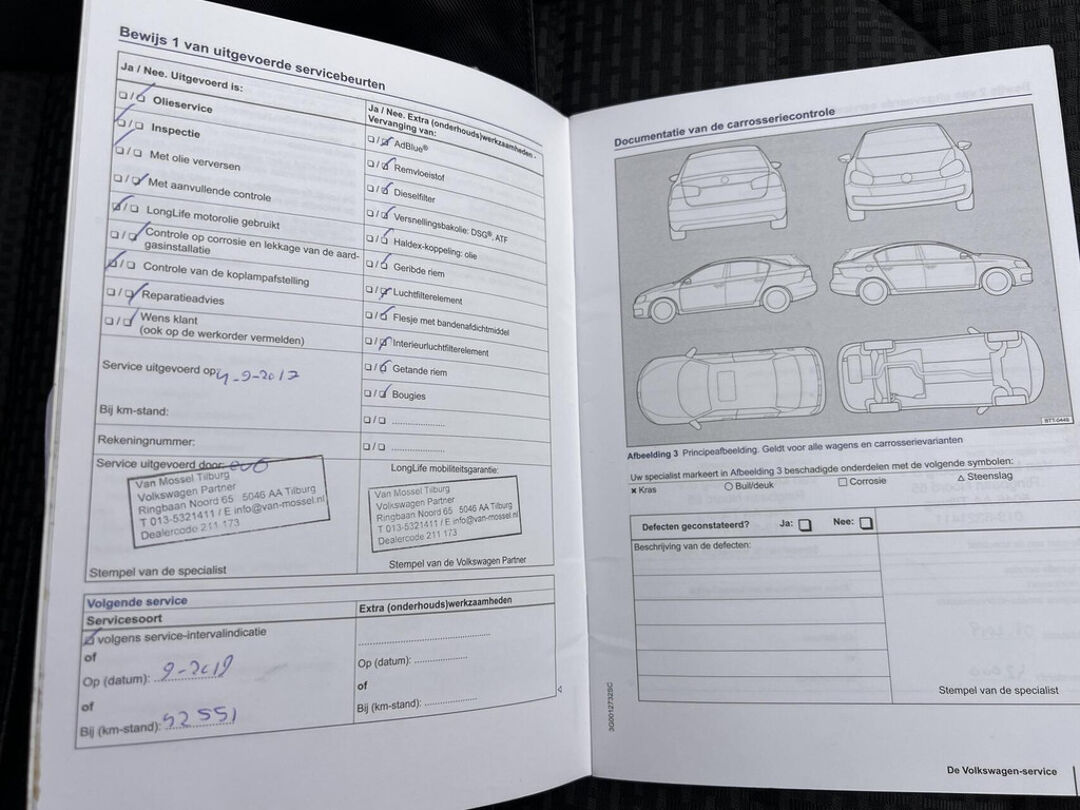 Bewijs 1 van uitgevoerde servicebeurten
Ja / Nee. Uitgevoerd is:
❏ / ❏ Olieservice
❏ / ❏ Inspectie
❏ / ❏ Met olie verversen
❏ / ❏ Met aanvullende controle
❏ / ❏ LongLife motorolie gebruikt
❏ / ❏ Controle op corrosie en lekkage van de aard-
gasinstallatie
❏ / ❏ Controle van de koplampafstelling
❏ / ❏ Reparatieadvies
❏ / ❏ Wens klant
(ook op de werkorder vermelden)
Service uitgevoerd op: 4-9-2017
Bij km-stand:
Rekeningnummer:
Service uitgevoerd door:
Van Mossel Tilburg
Volkswagen Partner
Ringbaan Noord 65 5046 AA Tilburg
T 013-5321411 / E info@van-mossel.nl
Dealercode 211 173
Stempel van de specialist
Ja / Nee. Extra (onderhouds)werkzaamheden -
Vervanging van:
❏ / ❏ AdBlue®
❏ / ❏ Remvloeistof
❏ / ❏ Dieselfilter
❏ / ❏ Versnellingsbakolie: DSG®, ATF
❏ / ❏ Haldex-koppeling: olie
❏ / ❏ Geribde riem
❏ / ❏ Luchtfilterelement
❏ / ❏ Flesje met bandenafdichtmiddel
❏ / ❏ Interieurluchtfilterelement
❏ / ❏ Getande riem
❏ / ❏ Bougies
❏ / ❏ ....................
❏ / ❏ ....................
LongLife mobiliteitsgarantie:
Van Mossel Tilburg
Volkswagen Partner
Ringbaan Noord 65 5046 AA Tilburg
T 013-5321411 / E info@van-mossel.nl
Dealercode 211 173
Stempel van de Volkswagen Partner
Volgende service
Servicesoort
❏ volgens service-intervalindicatie
of
Op (datum): 9-2019
of
Bij (km-stand): 52551
Extra (onderhouds)werkzaamheden
Op (datum): ....................
of
Bij (km-stand): ....................
Documentatie van de carrosseriecontrole
BTT-0445
Afbeelding 3 Principeafbeelding. Geldt voor alle wagens en carrosserievarianten
Uw specialist markeert in Afbeelding 3 beschadigde onderdelen met de volgende symbolen:
✖ Kras ○ Buil/deuk □ Corrosie △ Steenslag
Defecten geconstateerd? Ja: ❏ Nee: ❏
Beschrijving van de defecten:
Stempel van de specialist
3G0012732SC
De Volkswagen-service